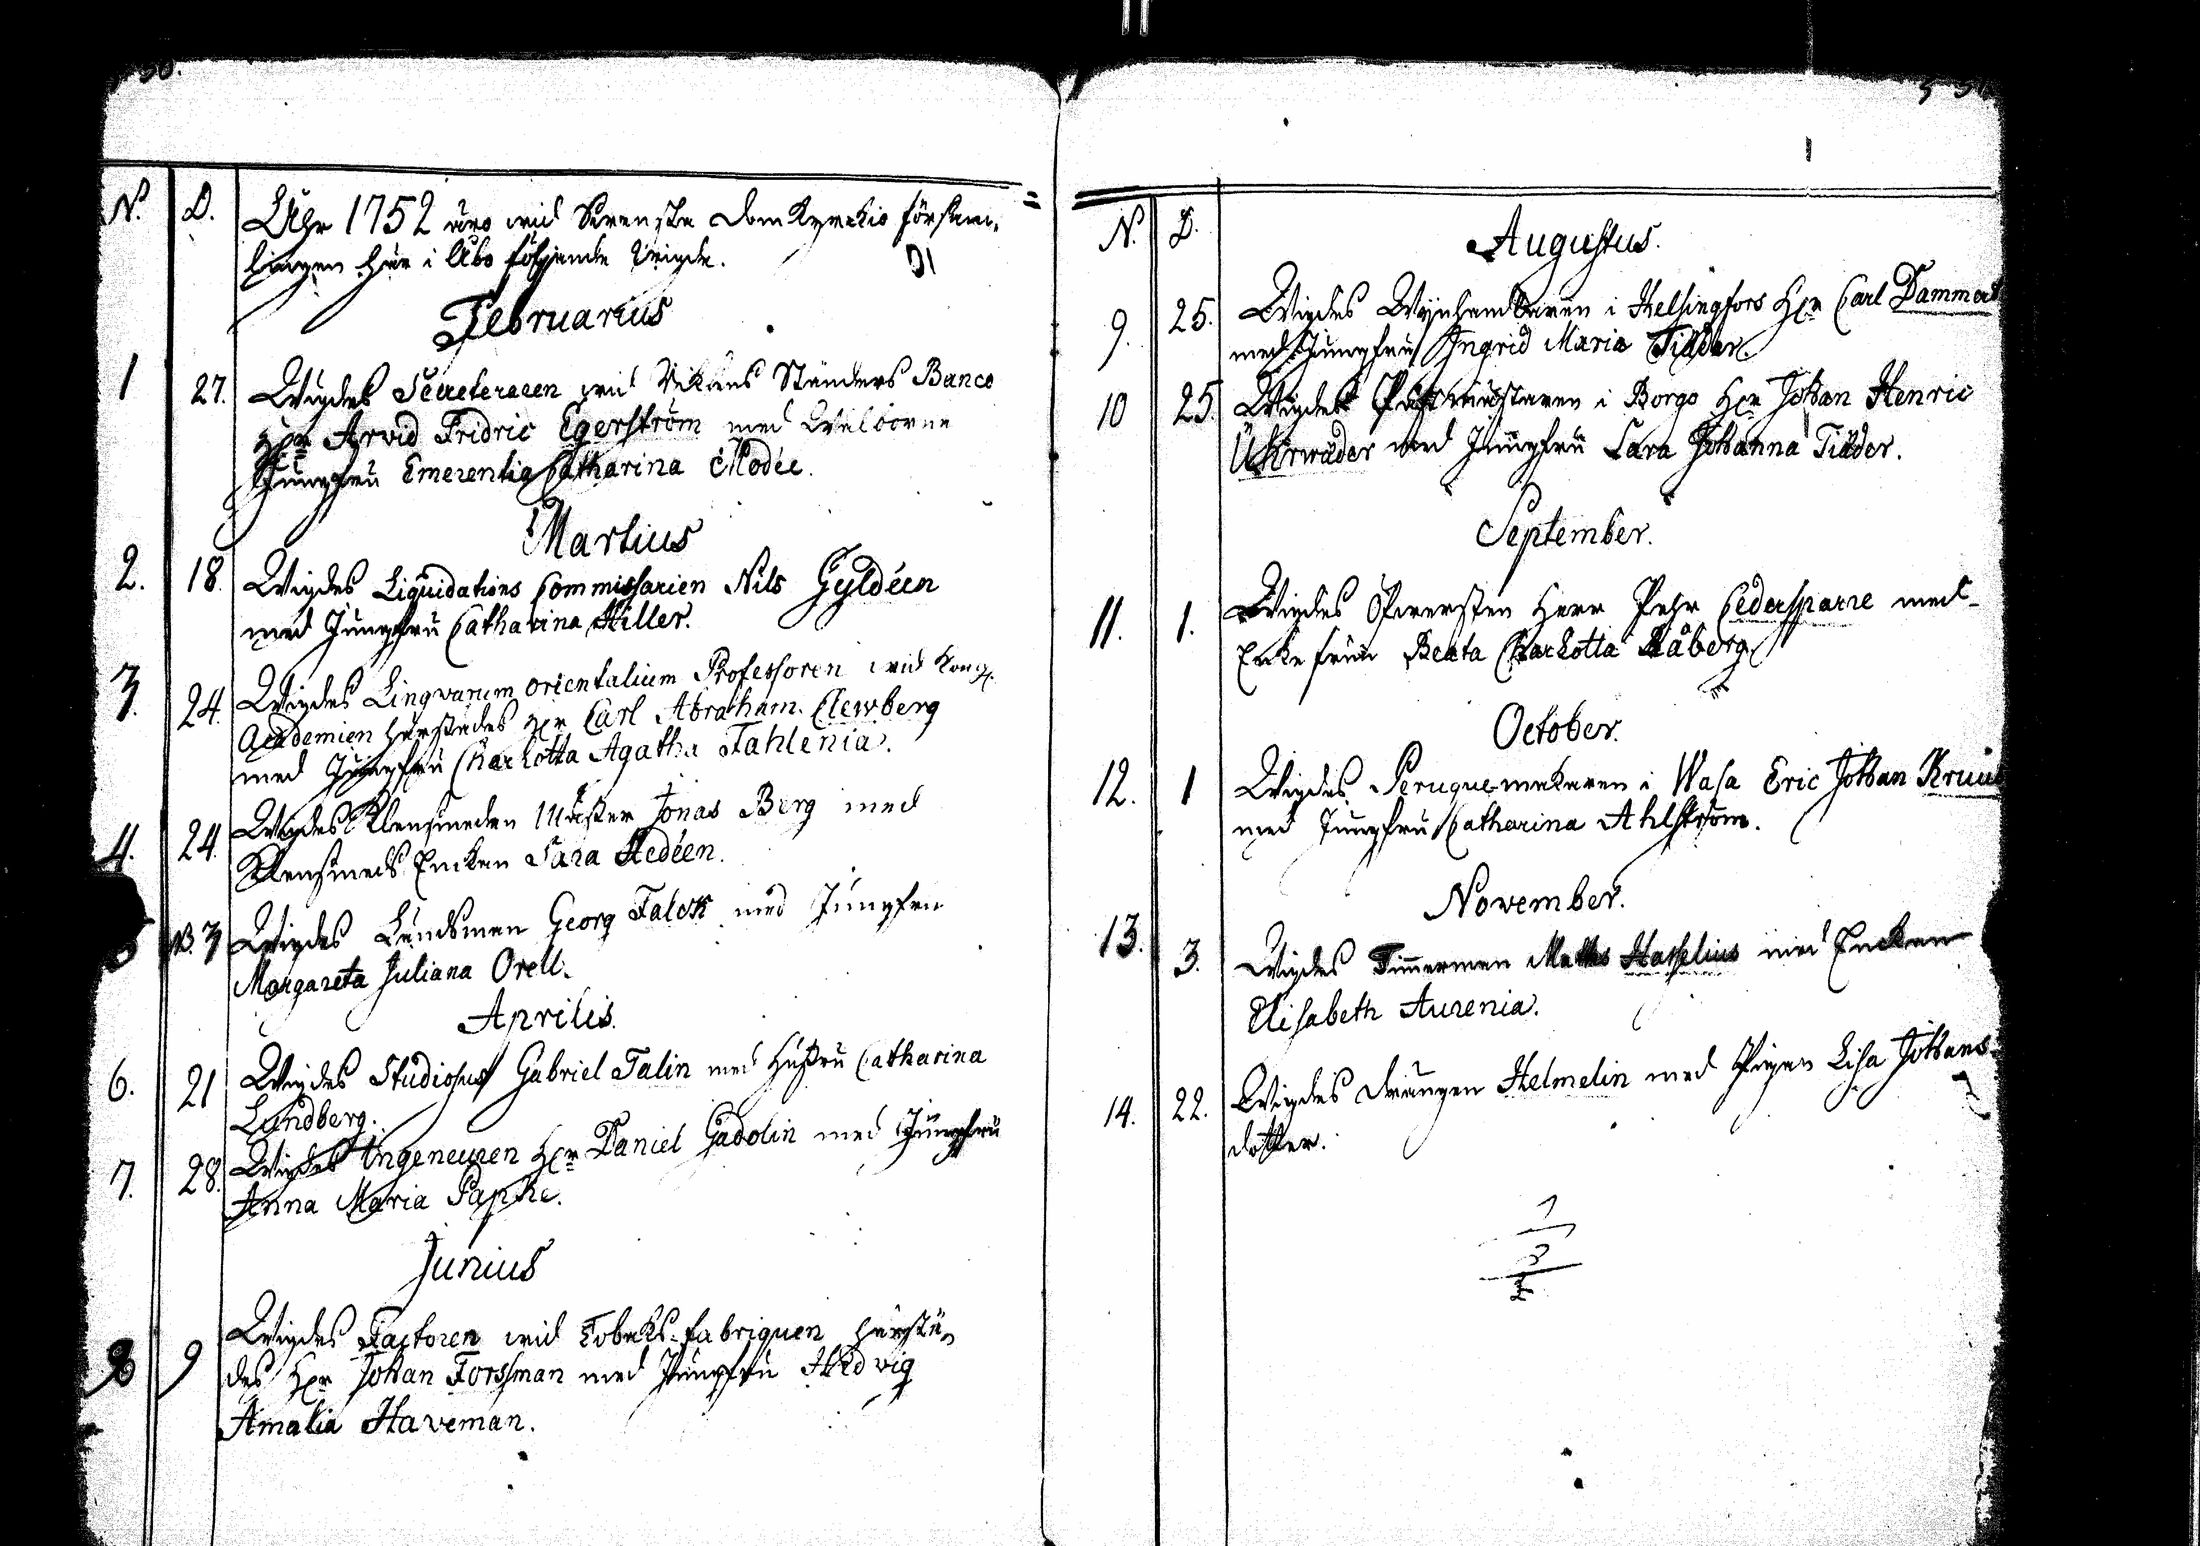 N. D. Uhr 1752 äro wid Swenska Domkyrckio försam-
lingen här i Åbo föhljande Vigde.
Februarius
1 27. Wigdes Secreteraren wid Riksens Ständers Banco
Hr Arvid Fridric Egerström med Wälborne
Jungfru Emerentia Catharina Modée.
Martius
2. 18 Wigdes Liquidations Commissarien Nils Gyldéen
med Jungfru Catharina Hiller.
3. 24. Wigdes Lingvarum orientalium Professoren wid Kongl.
Academien härstädes Hr Carl Abraham Clewberg
med Jungfru Charlotta Agatha Fahlenia.
4. 24. Wigdes Klensmeden Mäster Jonas Berg med
Klensmeds Enckan Sara Hedéen.
5 3 Wigdes Länsman Georg Falck med Jungfru
Margareta Juliana Orell.
Aprilis.
6. 21 Wigdes Studiosus Gabriel Talin med Hustru Catharina
Lundberg.
7. 28. Wigdes Ingeneuren Hr Daniel Gadolin med Jungfru
Anna Maria Papke.
Junius
8 9 Wigdes Factoren wid Tobaks-fabriquen härstä-
des Hr Johan Forssman med Jungfru Hedvig
Amalia Haveman.
N. D.
Augustus.
9. 25. Wigdes Wijnhandlaren i Helsingfors Hr Carl Dammert
med Jungfru Ingrid Maria Tilder.
10 25. Wigdes Postmästaren i Borgo Hr Johan Henric
med Jungfru Sara Johanna Tilder.
September.
11. 1. Wigdes Öfwersten Herr Pehr Cedersparre med
Enkefrun Beata Charlotta Råberg
October.
12. 1 Wigdes Peruquemakaren i Wasa Eric Johan
med Jungfru Catharina Ahlström.
November.
13. 3. Wigdes Timmerman Matts Hasselius med Enckan
Elisabeth Aurenia.
14. 22. Wigdes Drängen Helmelin med Pigan Lisa Johans-
dotter.